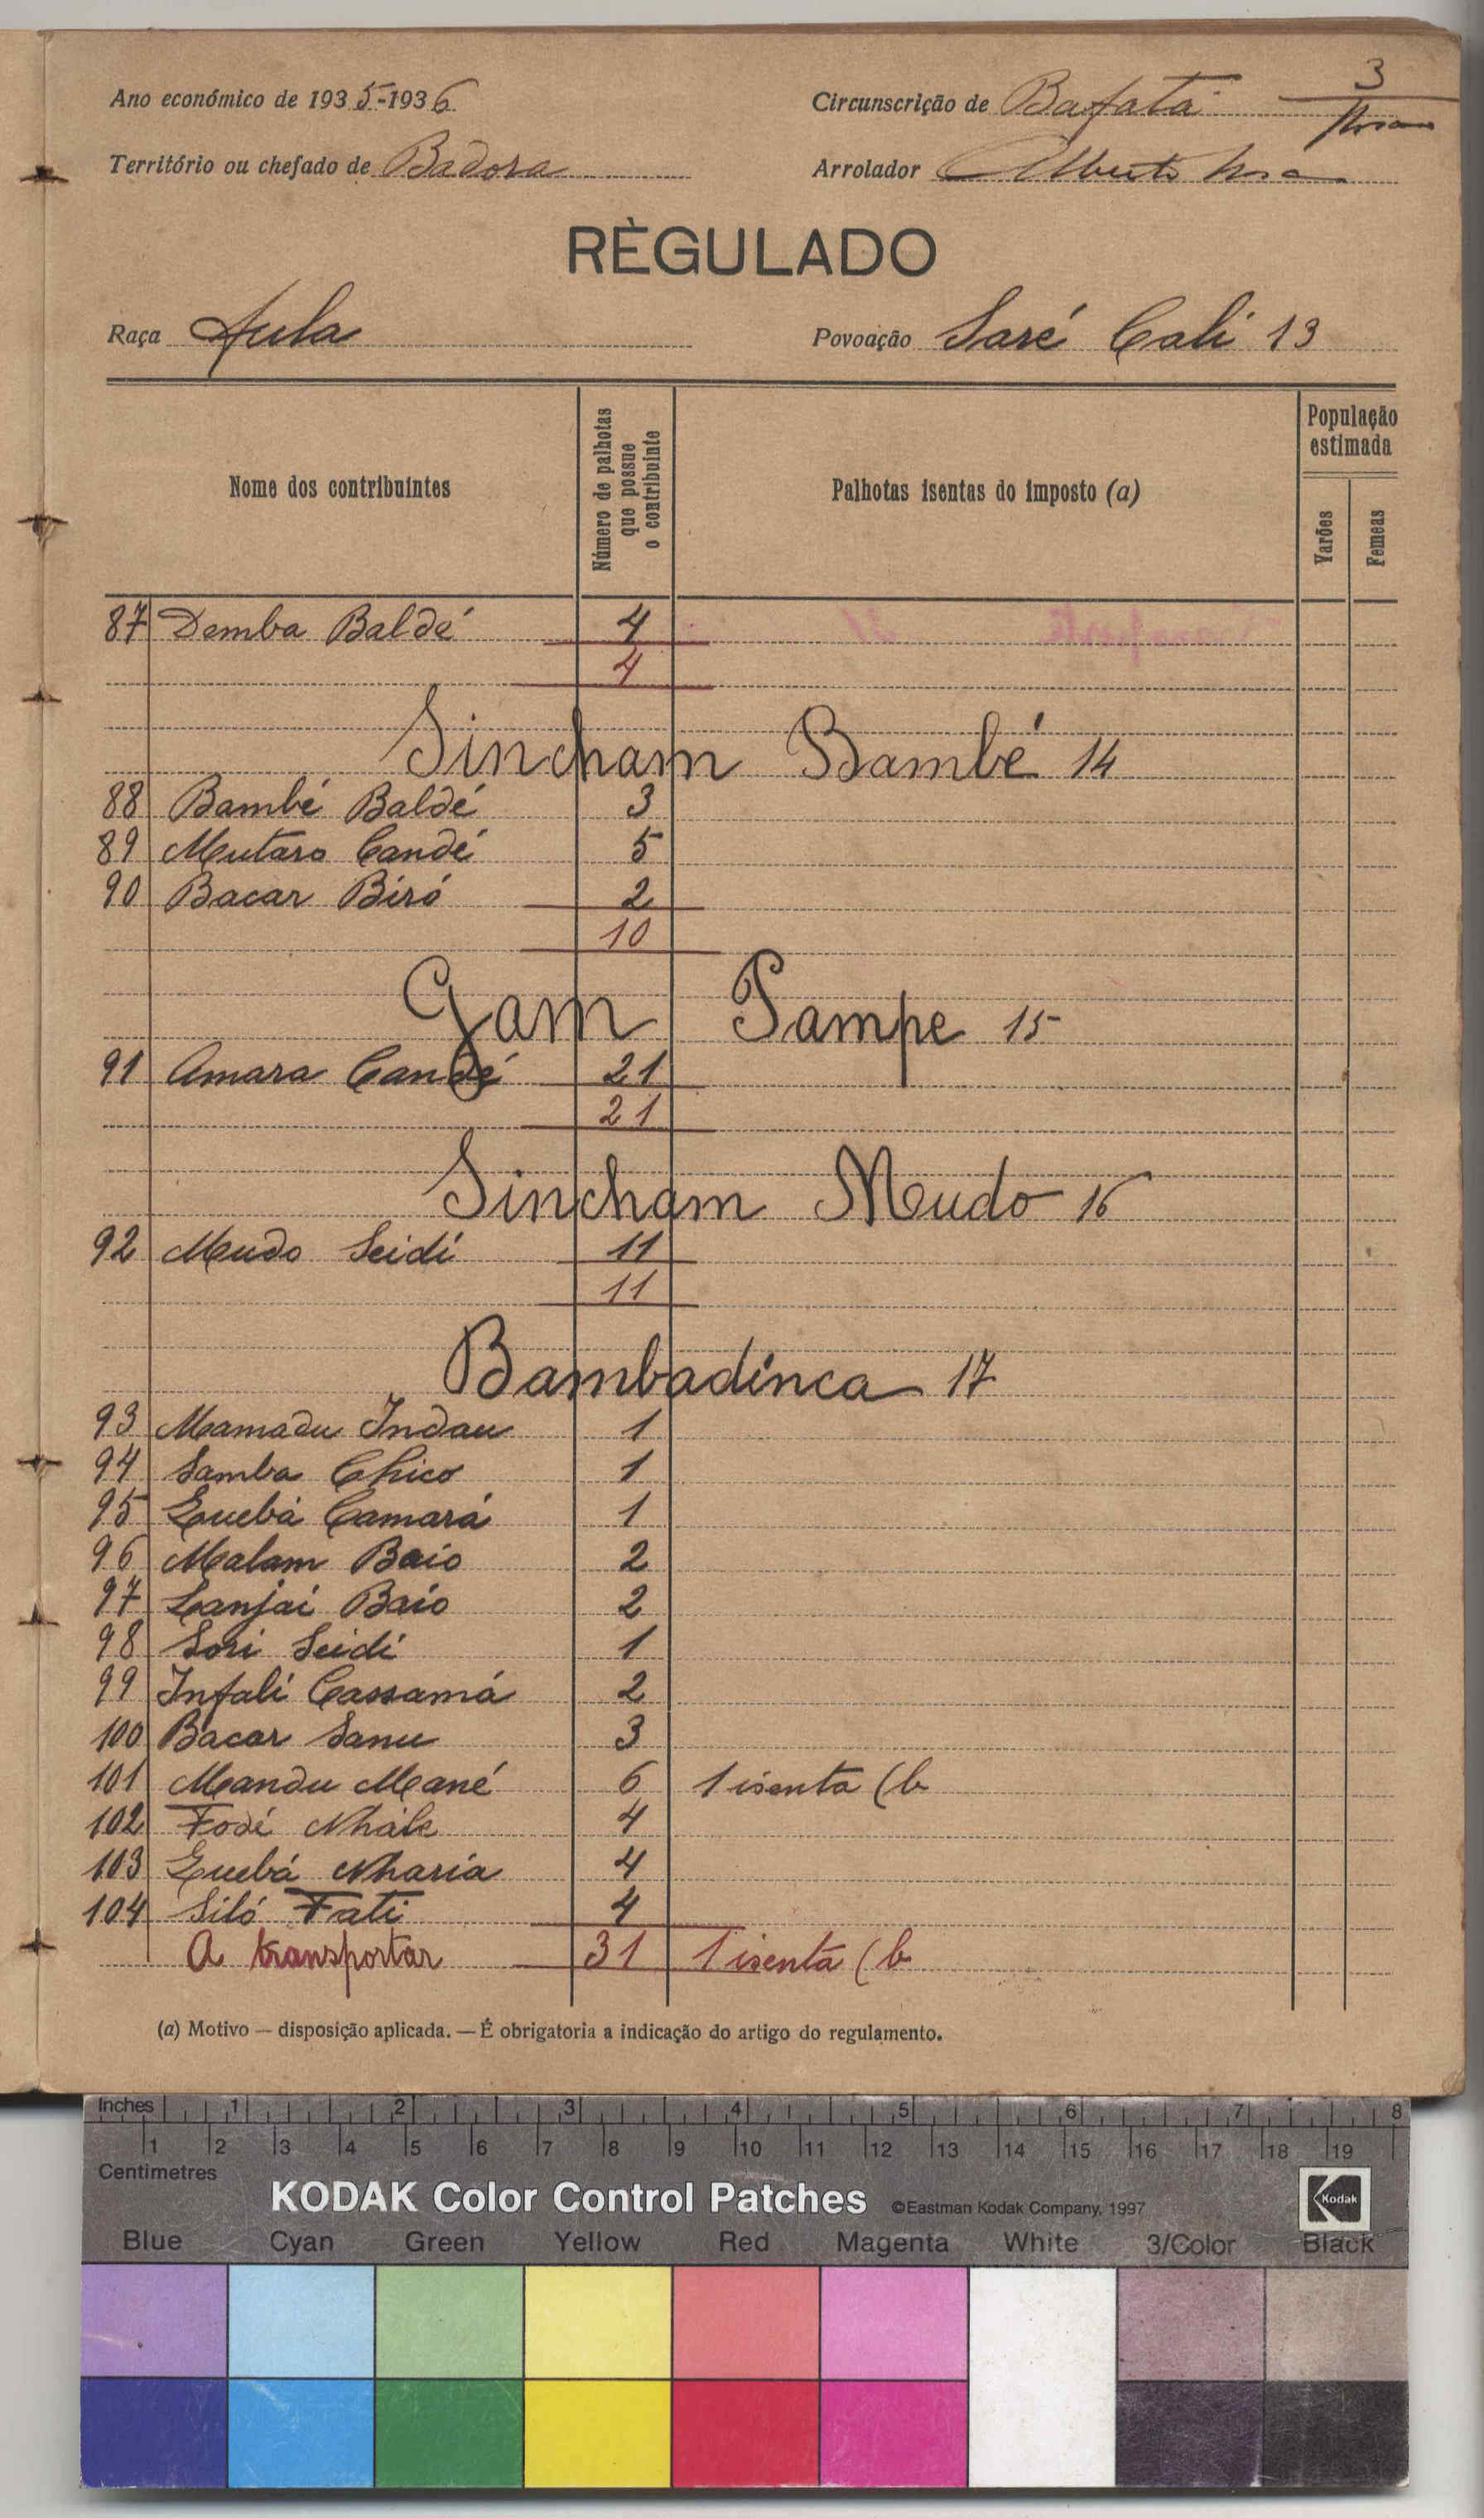 Ano económico de 1935-1936
Circunscrição de Bafatá
3
Território ou chefado de Badora
Arrolador Alberto
RÈGULADO
Raça Fula
Povoação Saré Cali 13
Nome dos contribuintes
Número de palhotas que possue o contribuinte
Palhotas isentas do imposto (a)
População estimada
Varões
Femeas
87 Demba Baldé 4
4
Sincham Bambé 14
88 Bambé Baldé 3
89 Mutaro Candé 5
90 Bacar Biró 2
10
Gam Pampe 15
91 Amara Candé 21
21
Sincham Meudo 16
92 Meudo Seidi 11
11
Bambadinca 17
93 Mamadu Indau 1
94 Samba Chico 1
95 Quebá Camará 1
96 Malam Baio 2
97 Lanjai Baio 2
98 Sori Seidi 1
99 Infali Cassamá 2
100 Bacar Sanu 3
101 Mandu Mané 6 1 isenta (b
102 Fodé 4
103 Quebá Nharia 4
104 Siló Fati 4
A transportar 31 1 isenta (b
(a) Motivo — disposição aplicada. — É obrigatoria a indicação do artigo do regulamento.
Inches 1 2 3 4 5 6 7 8
1 2 3 4 5 6 7 8 9 10 11 12 13 14 15 16 17 18 19
Centimetres
KODAK Color Control Patches ©Eastman Kodak Company, 1997 Kodak
Blue Cyan Green Yellow Red Magenta White 3/Color Black